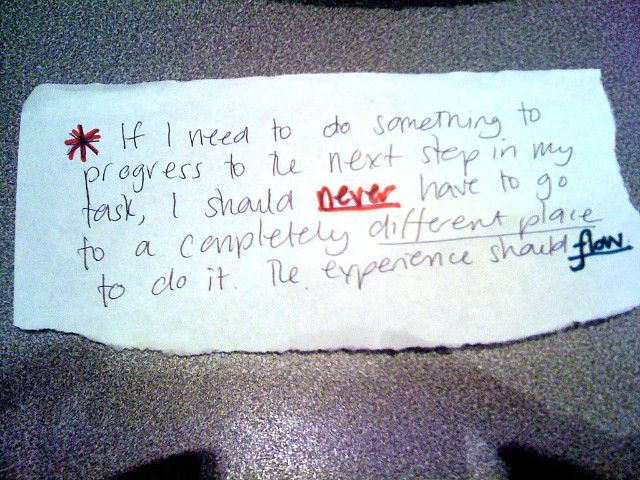 * If I need to do something to
progress to the next step in my
task, I should never have to go
to a completely different place
to do it. The experience should flow